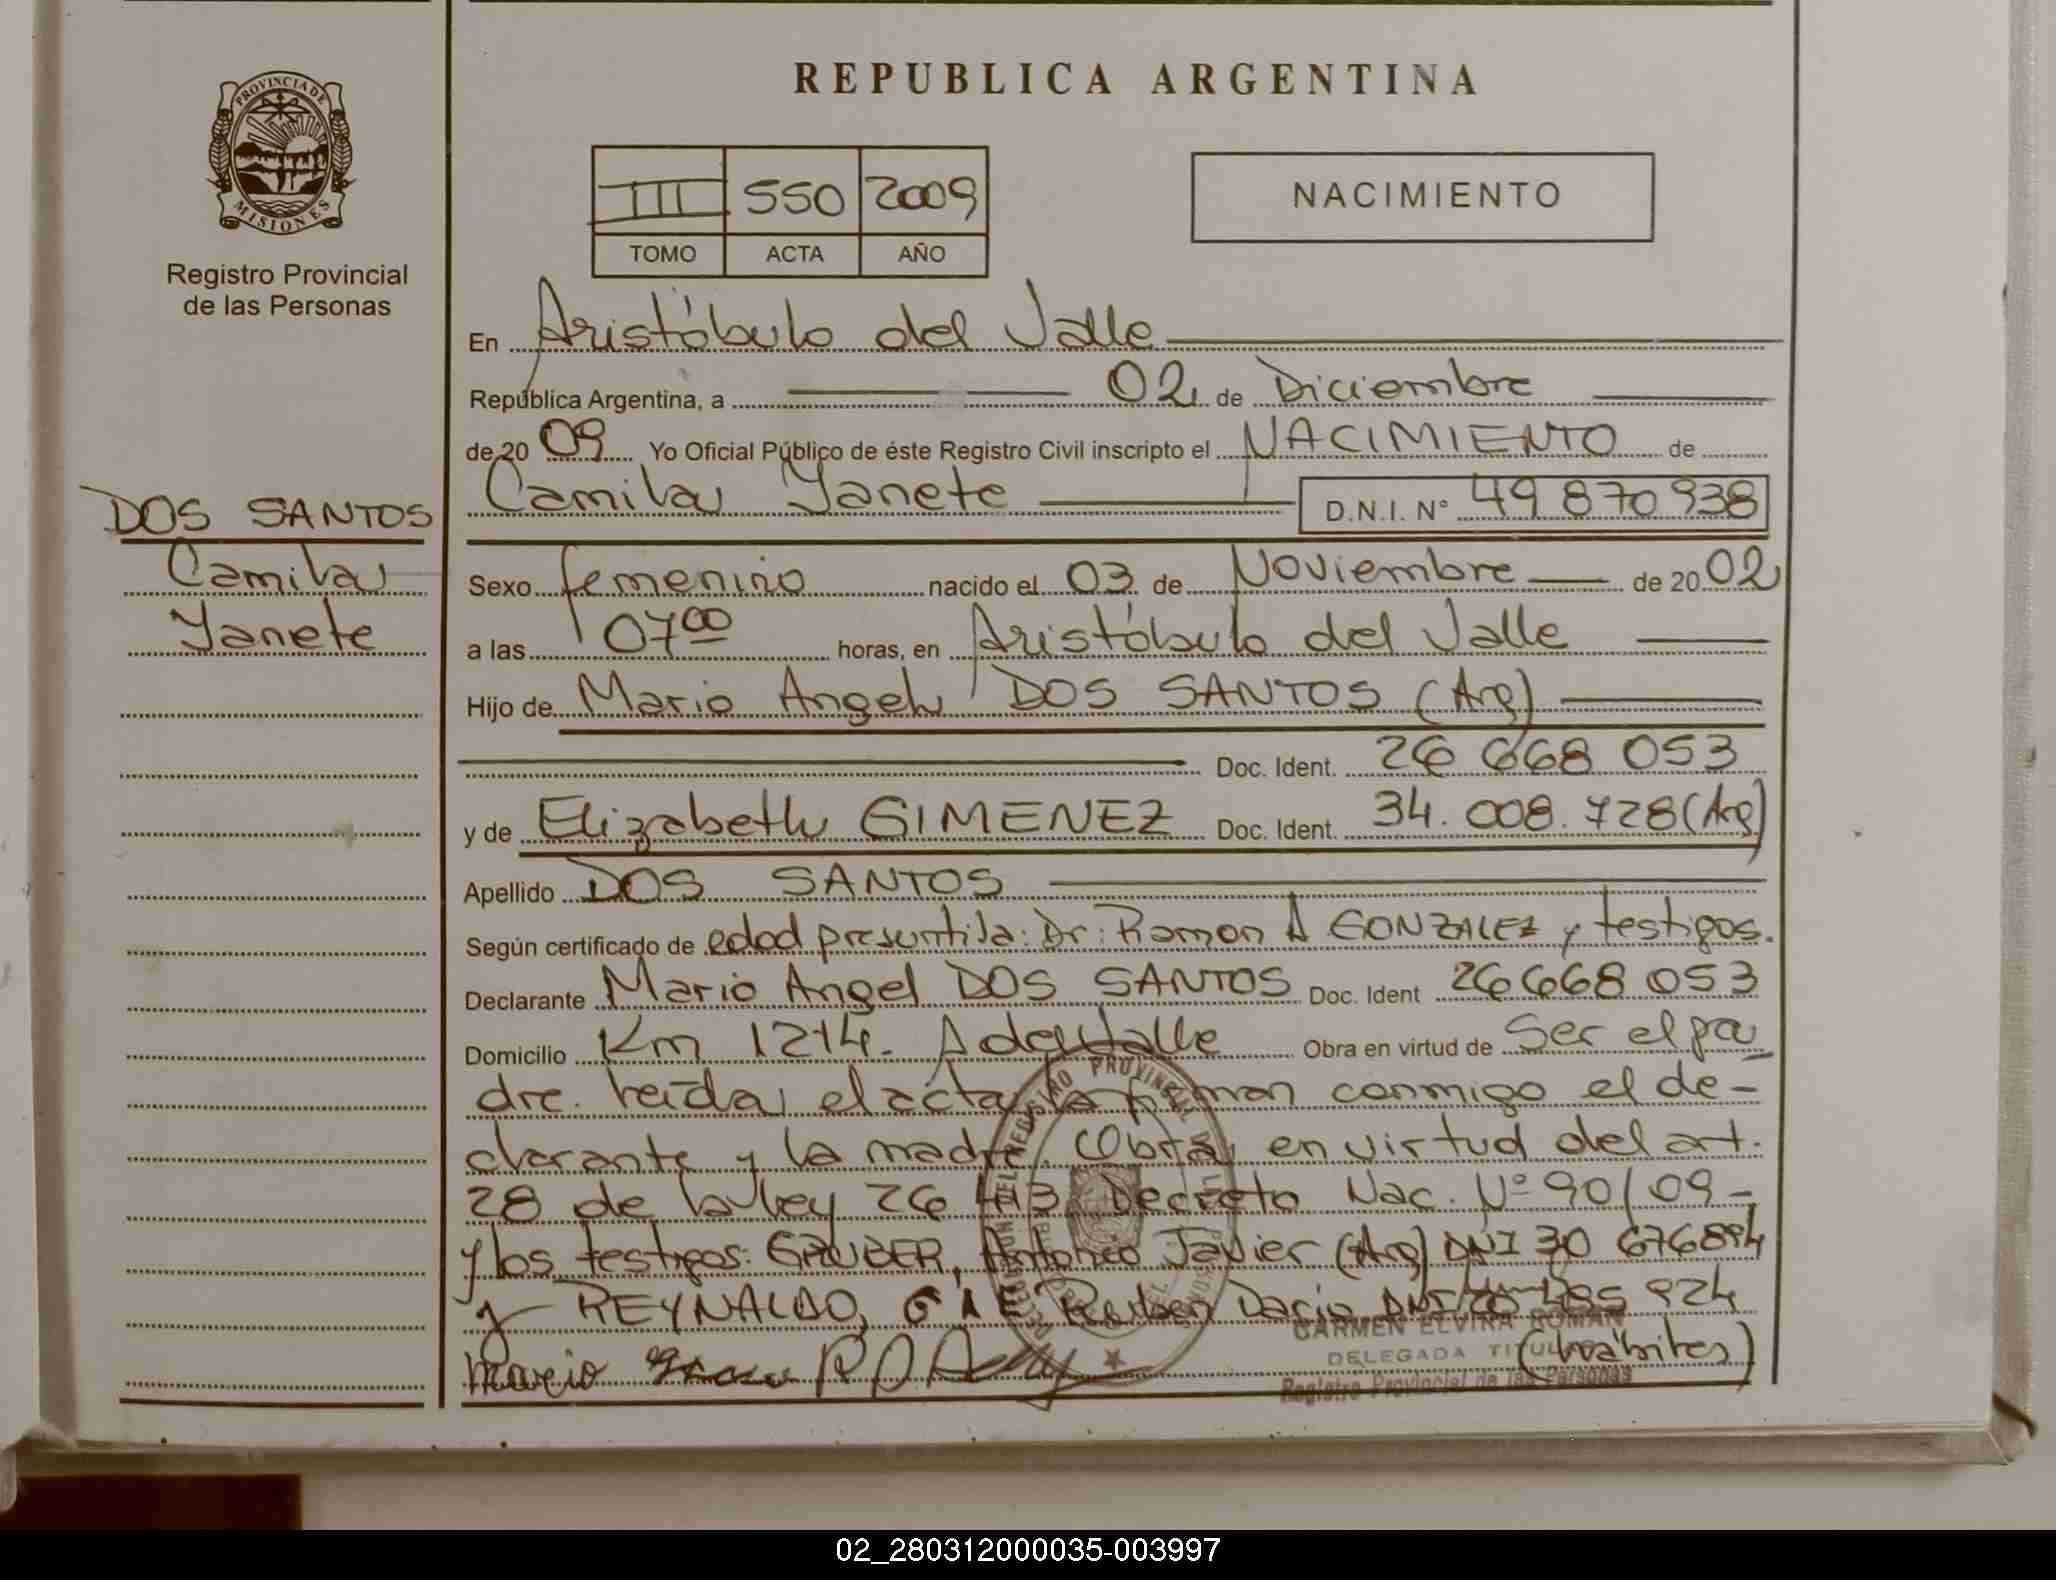 PROVINCIA DE
MISIONES
Registro Provincial
de las Personas
DOS SANTOS
Camila
Yanete
REPUBLICA ARGENTINA
III 550 2009
TOMO ACTA AÑO
NACIMIENTO
En Aristóbulo del Valle
República Argentina, a 02 de Diciembre
de 20 09 Yo Oficial Público de éste Registro Civil inscripto el NACIMIENTO de
Camila Yanete D.N.I. Nº 49 870 938
Sexo femenino nacido el 03 de Noviembre de 20 02
a las 07 00 horas, en Aristóbulo del Valle
Hijo de Mario Angel DOS SANTOS (Arg)
Doc. Ident. 26 668 053
y de Elizabeth GIMENEZ Doc. Ident. 34.008.728 (Arg)
Apellido DOS SANTOS
Según certificado de edad presuntiva: Dr: Ramon A GONZALEZ y testigos.
Declarante Mario Angel DOS SANTOS Doc. Ident 26 668 053
Domicilio Km 1214. A del Valle Obra en virtud de Ser el pa
dre. leída el acta, la firman conmigo el de-
clarante y la madre. Obra en virtud del art.
28 de la ley 26 413 Decreto Nac. Nº 90/09-
y los testigos: GRUBER, Antonio Javier (Arg) DNI 30 676894
y REYNALDO, Ruben Dario DNI 924
CARMEN ELVIRA ROMAN
DELEGADA TITULAR
Registro Provincial de las Personas
02_280312000035-003997